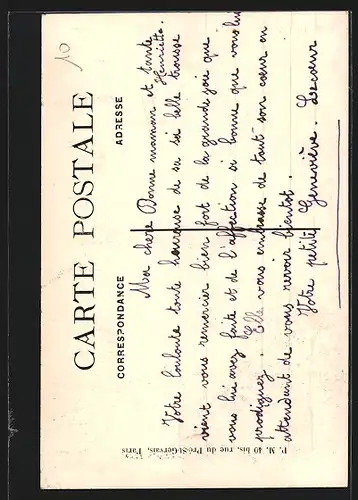 10
CARTE POSTALE
CORRESPONDANCE
ADRESSE
Ma chere Bonne maman et tante
Henriette.
Votre louloute toute heureuse de sa si belle trousse
vient vous remercier bien fort de la grande joie que
vous lui avez faite et de l'affection si bonne que vous lui
prodiguez. Elle vous embrasse de tout son cœur en
attendant de vous revoir bientot.
Votre petite Geneviève.
P. M. 49 bis, rue du Pré-St-Gervais, Paris